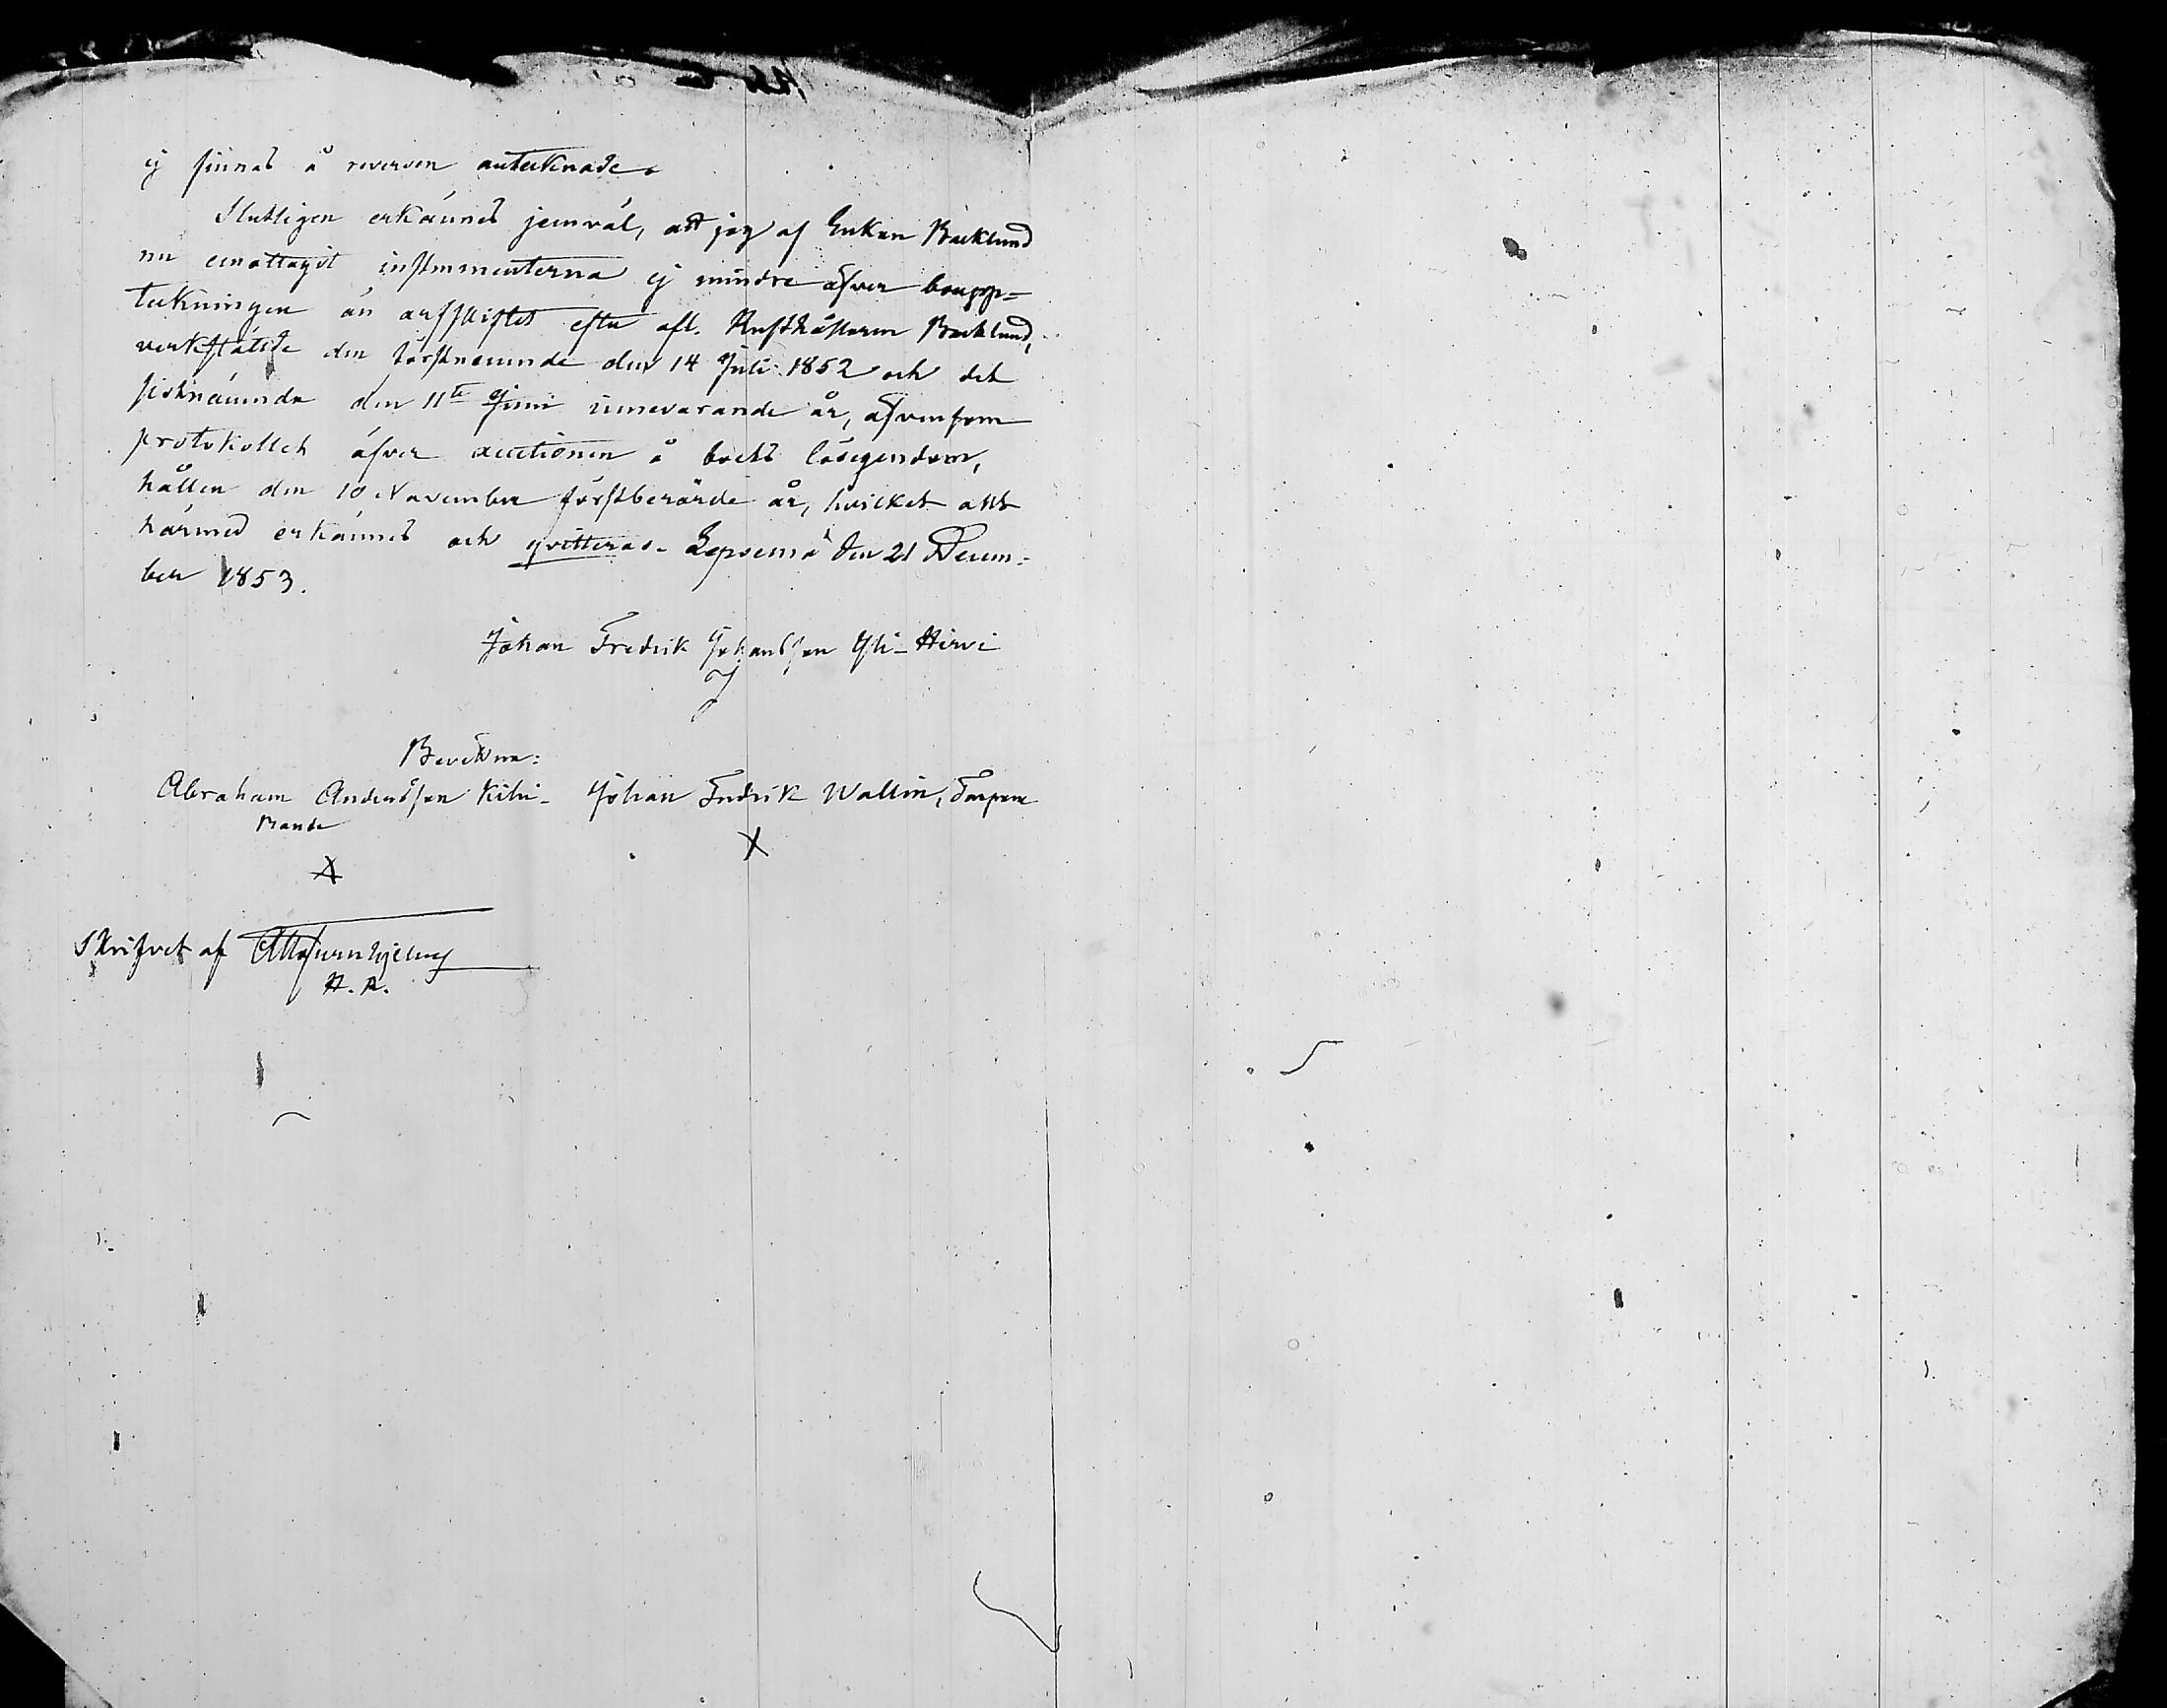 ej finnas å reversen antecknade.
Slutligen erkännes jemväl, att jag af Enkan Backlund
nu emottagit instrumenterna ej mindre öfver boupp-
teckningen än arfskiftet efter afl. Rusthållaren Backlund,
verkstälde den förstnemnde den 14 Juli 1852 och det
sistnämnda den 11te Juni innevarande år, äfvensom
protokollet öfver auctionen å boets lösegendom,
hållen den 10 November förstberörde år, hvilket allt
härmed erkännes och qvitteras. Lepsemä den 21 Decem-
ber 1853.
Johan Fredrik Johansson Yli-Hirvi
Bevittna:
Abraham Andersson Kihi- Johan Fredrik Wallin, Torpare
Bonde
X
Skrifvet af
H. R.